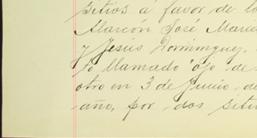 sitios a favor de lo
Alarcón José María
y Jesús Dominguez.
to llamado "ojo de
otro en 3 de Junio de
año, por dos sitio